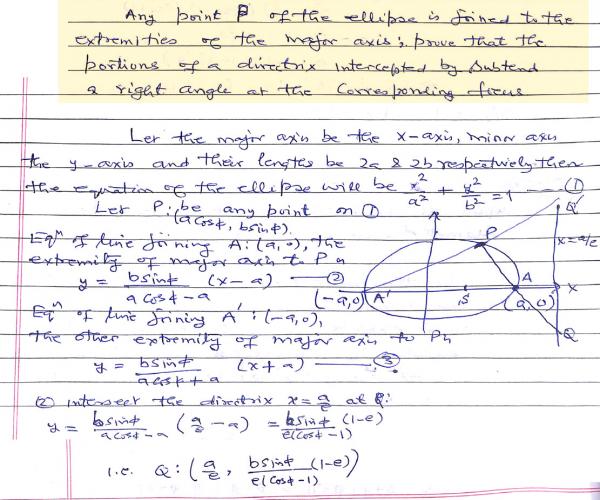 Any point P of the ellipse is joined to the
extremities of the major axis; prove that the
portions of a directrix intercepted by subtend
a right angle at the corresponding focus
Let the major axis be the x-axis, minor axis
the y-axis and their lengths be 2a & 2b respectively then
the equation of the ellipse will be x²/a² + y²/b² = 1 — ①
Let P:(a cosϕ, b sinϕ) be any point on ①
Eqⁿ of line joining A:(a,0), the
extremity of major axis to P is
y = b sinϕ/(a cosϕ - a) (x - a) — ②
Eqⁿ of line joining A':(-a,0),
the other extremity of major axis to P is
y = b sinϕ/(a cosϕ + a) (x + a) — ③
② intersect the directrix x = a/e at Q:
y = b sinϕ/(a cosϕ - a) (a/e - a) = b sinϕ (1-e)/e(cosϕ-1)
i.e. Q:(a/e, b sinϕ (1-e)/e(cosϕ-1))
Q'
P
x = a/e
(-a,0) A'
S
A
(a,0)
X
Q